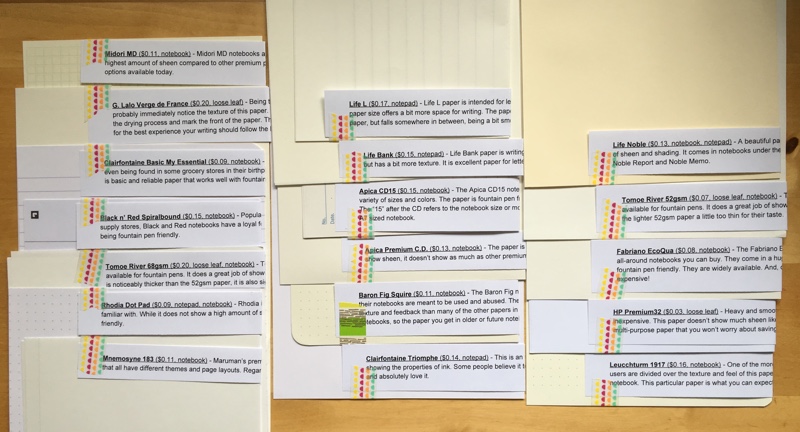 Midori MD ($0.11, notebook) - Midori MD notebooks a
highest amount of sheen compared to other premium p
options available today.
G. Lalo Verge de France ($0.20, loose leaf) - Being t
probably immediately notice the texture of this paper.
the drying process and mark the front of the paper. Th
for the best experience your writing should follow the l
Clairfontaine Basic My Essential ($0.09, notebook) -
even being found in some grocery stores in their birthp
is basic and reliable paper that works well with fountain
Black n' Red Spiralbound ($0.15, notebook) - Popula
supply stores, Black and Red notebooks have a loyal f
being fountain pen friendly.
Tomoe River 68gsm ($0.20, loose leaf, notebook) - T
available for fountain pens. It does a great job of show
is noticeably thicker than the 52gsm paper, it is also si
Rhodia Dot Pad ($0.09, notepad, notebook) - Rhodia i
familiar with. While it does not show a high amount of s
friendly.
Mnemosyne 183 ($0.11, notebook) - Maruman's prem
that all have different themes and page layouts. Regar
Life L ($0.17, notepad) - Life L paper is intended for le
paper size offers a bit more space for writing. The pap
paper, but falls somewhere in between, being a bit sm
Life Bank ($0.15, notepad) - Life Bank paper is writing
but has a bit more texture. It is excellent paper for lette
Apica CD15 ($0.15, notebook) - The Apica CD15 note
variety of sizes and colors. The paper is fountain pen fr
The "15" after the CD refers to the notebook size or mo
sized notebook.
No.
Date
Apica Premium C.D. ($0.13, notebook) - The paper is
show sheen, it doesn't show as much as other premium
Baron Fig Squire ($0.11, notebook) - The Baron Fig n
their notebooks are meant to be used and abused. The
texture and feedback than many of the other papers in
notebooks, so the paper you get in older or future note
Clairfontaine Triomphe ($0.14, notepad) - This is an
showing the properties of ink. Some people believe it t
and absolutely love it.
Life Noble ($0.13, notebook, notepad) - A beautiful pa
of sheen and shading. It comes in notebooks under the
Noble Report and Noble Memo.
Tomoe River 52gsm ($0.07, loose leaf, notebook) - T
available for fountain pens. It does a great job of show
the lighter 52gsm paper a little too thin for their taste.
Fabriano EcoQua ($0.08, notebook) - The Fabriano E
all-around notebooks you can buy. They come in a hu
fountain pen friendly. They are widely available. And,
expensive!
HP Premium32 ($0.03, loose leaf) - Heavy and smoo
inexpensive. This paper doesn't show much sheen like
multi-purpose paper that you won't worry about saving
Leucchturm 1917 ($0.16, notebook) - One of the mor
users are divided over the texture and feel of this pape
notebook. This particular paper is what you can expec